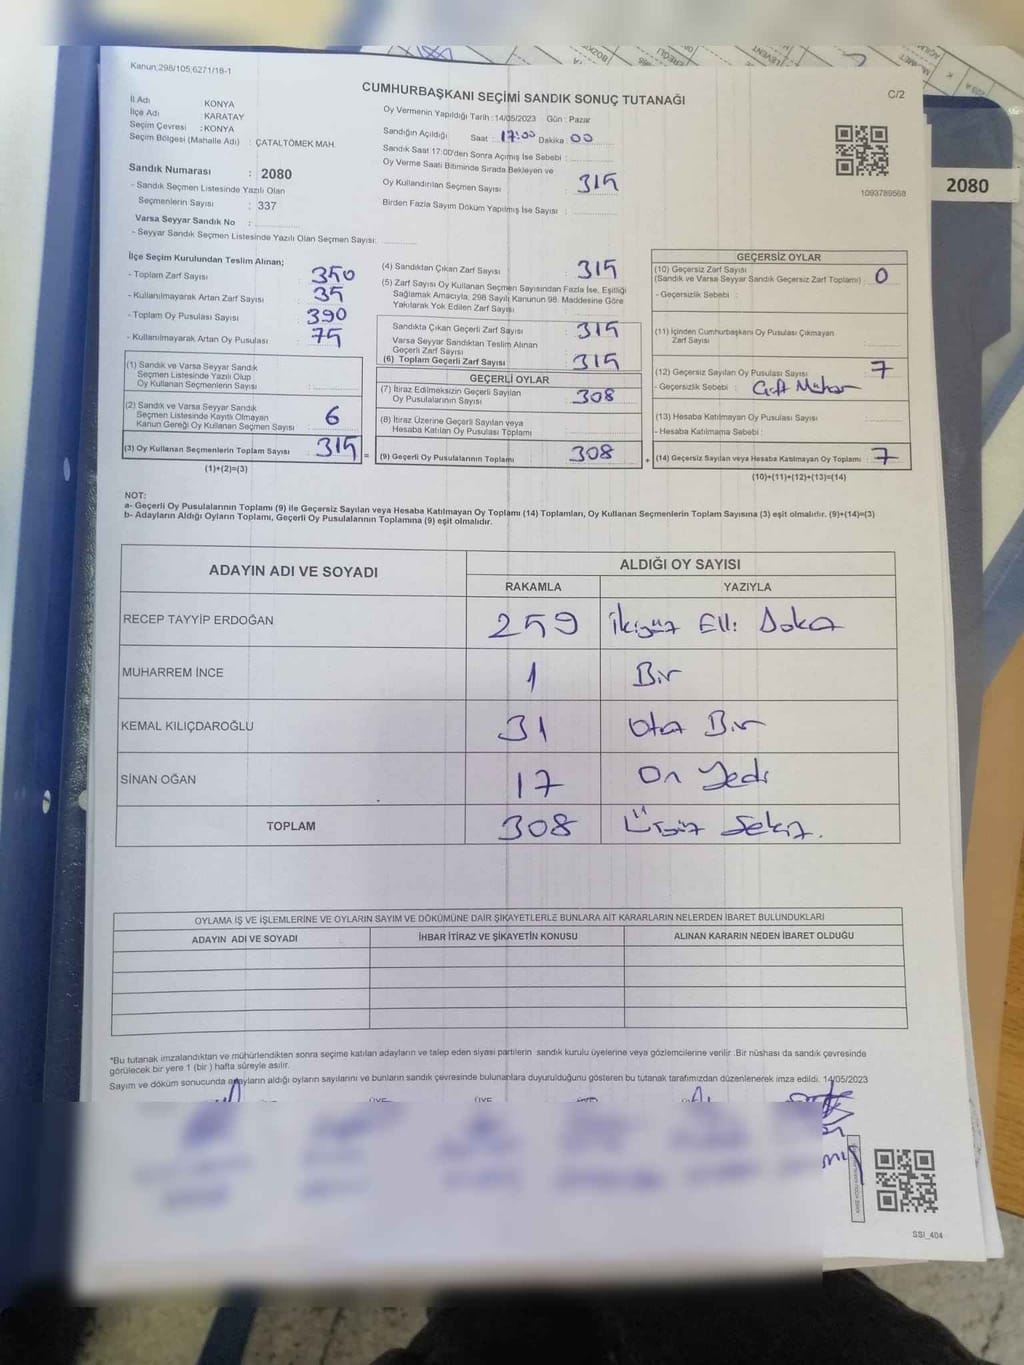 Kanun;298/105;6271/18-1
CUMHURBAŞKANI SEÇİMİ SANDIK SONUÇ TUTANAĞI
C/2
İl Adı KONYA
İlçe Adı KARATAY
Seçim Çevresi :KONYA
Seçim Bölgesi (Mahalle Adı) : ÇATALTÖMEK MAH.
Sandık Numarası : 2080
- Sandık Seçmen Listesinde Yazılı Olan
Seçmenlerin Sayısı : 337
Varsa Seyyar Sandık No :
- Seyyar Sandık Seçmen Listesinde Yazılı Olan Seçmen Sayısı:
Oy Vermenin Yapıldığı Tarih :14/05/2023 Gün : Pazar
Sandığın Açıldığı Saat : 17:00 Dakika 00
Sandık Saat 17:00'den Sonra Açımış İse Sebebi :
Oy Verme Saati Bitiminde Sırada Bekleyen ve
Oy Kullandırılan Seçmen Sayısı : 315
Birden Fazla Sayım Döküm Yapılmış İse Sayısı :
1093789568
2080
İlçe Seçim Kurulundan Teslim Alınan;
- Toplam Zarf Sayısı : 350
- Kullanılmayarak Artan Zarf Sayısı : 35
- Toplam Oy Pusulası Sayısı : 390
- Kullanılmayarak Artan Oy Pusulası : 75
(1) Sandık ve Varsa Seyyar Sandık
Seçmen Listesinde Yazılı Olup
Oy Kullanan Seçmenlerin Sayısı :
(2) Sandık ve Varsa Seyyar Sandık
Seçmen Listesinde Kayıtlı Olmayan
Kanun Gereği Oy Kullanan Seçmen Sayısı : 6
(3) Oy Kullanan Seçmenlerin Toplam Sayısı 315 =
(1)+(2)=(3)
(4) Sandıktan Çıkan Zarf Sayısı : 315
(5) Zarf Sayısı Oy Kullanan Seçmen Sayısından Fazla İse, Eşitliği
Sağlamak Amacıyla, 298 Sayılı Kanunun 98. Maddesine Göre
Yakılarak Yok Edilen Zarf Sayısı :
Sandıkta Çıkan Geçerli Zarf Sayısı : 315
Varsa Seyyar Sandıktan Teslim Alınan
Geçerli Zarf Sayısı :
(6) Toplam Geçerli Zarf Sayısı : 315
GEÇERLİ OYLAR
(7) İtiraz Edilmeksizin Geçerli Sayılan
Oy Pusulalarının Sayısı : 308
(8) İtiraz Üzerine Geçerli Sayılan veya
Hesaba Katılan Oy Pusulası Toplamı :
(9) Geçerli Oy Pusulalarının Toplamı : 308 +
GEÇERSİZ OYLAR
(10) Geçersiz Zarf Sayısı
(Sandık ve Varsa Seyyar Sandık Geçersiz Zarf Toplamı) : 0
- Geçersizlik Sebebi :
(11) İçinden Cumhurbaşkanı Oy Pusulası Çıkmayan
Zarf Sayısı :
(12) Geçersiz Sayılan Oy Pusulası Sayısı : 7
- Geçersizlik Sebebi : Çift Mühür
(13) Hesaba Katılmayan Oy Pusulası Sayısı :
- Hesaba Katılmama Sebebi :
(14) Geçersiz Sayılan veya Hesaba Katılmayan Oy Toplamı : 7
(10)+(11)+(12)+(13)=(14)
NOT:
a- Geçerli Oy Pusulalarının Toplamı (9) ile Geçersiz Sayılan veya Hesaba Katılmayan Oy Toplamı (14) Toplamları, Oy Kullanan Seçmenlerin Toplam Sayısına (3) eşit olmalıdır. (9)+(14)=(3)
b- Adayların Aldığı Oyların Toplamı, Geçerli Oy Pusulalarının Toplamına (9) eşit olmalıdır.
ADAYIN ADI VE SOYADI
ALDIĞI OY SAYISI
RAKAMLA YAZIYLA
RECEP TAYYİP ERDOĞAN 259 İkiyüz Elli Dokuz
MUHARREM İNCE 1 Bir
KEMAL KILIÇDAROĞLU 31 Otuz Bir
SİNAN OĞAN 17 On Yedi
TOPLAM 308 Üçyüz Sekiz.
OYLAMA İŞ VE İŞLEMLERİNE VE OYLARIN SAYIM VE DÖKÜMÜNE DAİR ŞİKAYETLERLE BUNLARA AİT KARARLARIN NELERDEN İBARET BULUNDUKLARI
ADAYIN ADI VE SOYADI İHBAR İTİRAZ VE ŞİKAYETİN KONUSU ALINAN KARARIN NEDEN İBARET OLDUĞU
*Bu tutanak imzalandıktan ve mühürlendikten sonra seçime katılan adayların ve talep eden siyasi partilerin sandık kurulu üyelerine veya gözlemcilerine verilir .Bir nüshası da sandık çevresinde
görülecek bir yere 1 (bir ) hafta süreyle asılır.
Sayım ve döküm sonucunda adayların aldığı oyların sayılarını ve bunların sandık çevresinde bulunanlara duyurulduğunu gösteren bu tutanak tarafımızdan düzenlenerek imza edildi. 14/05/2023
ÜYE ÜYE
SSI_404